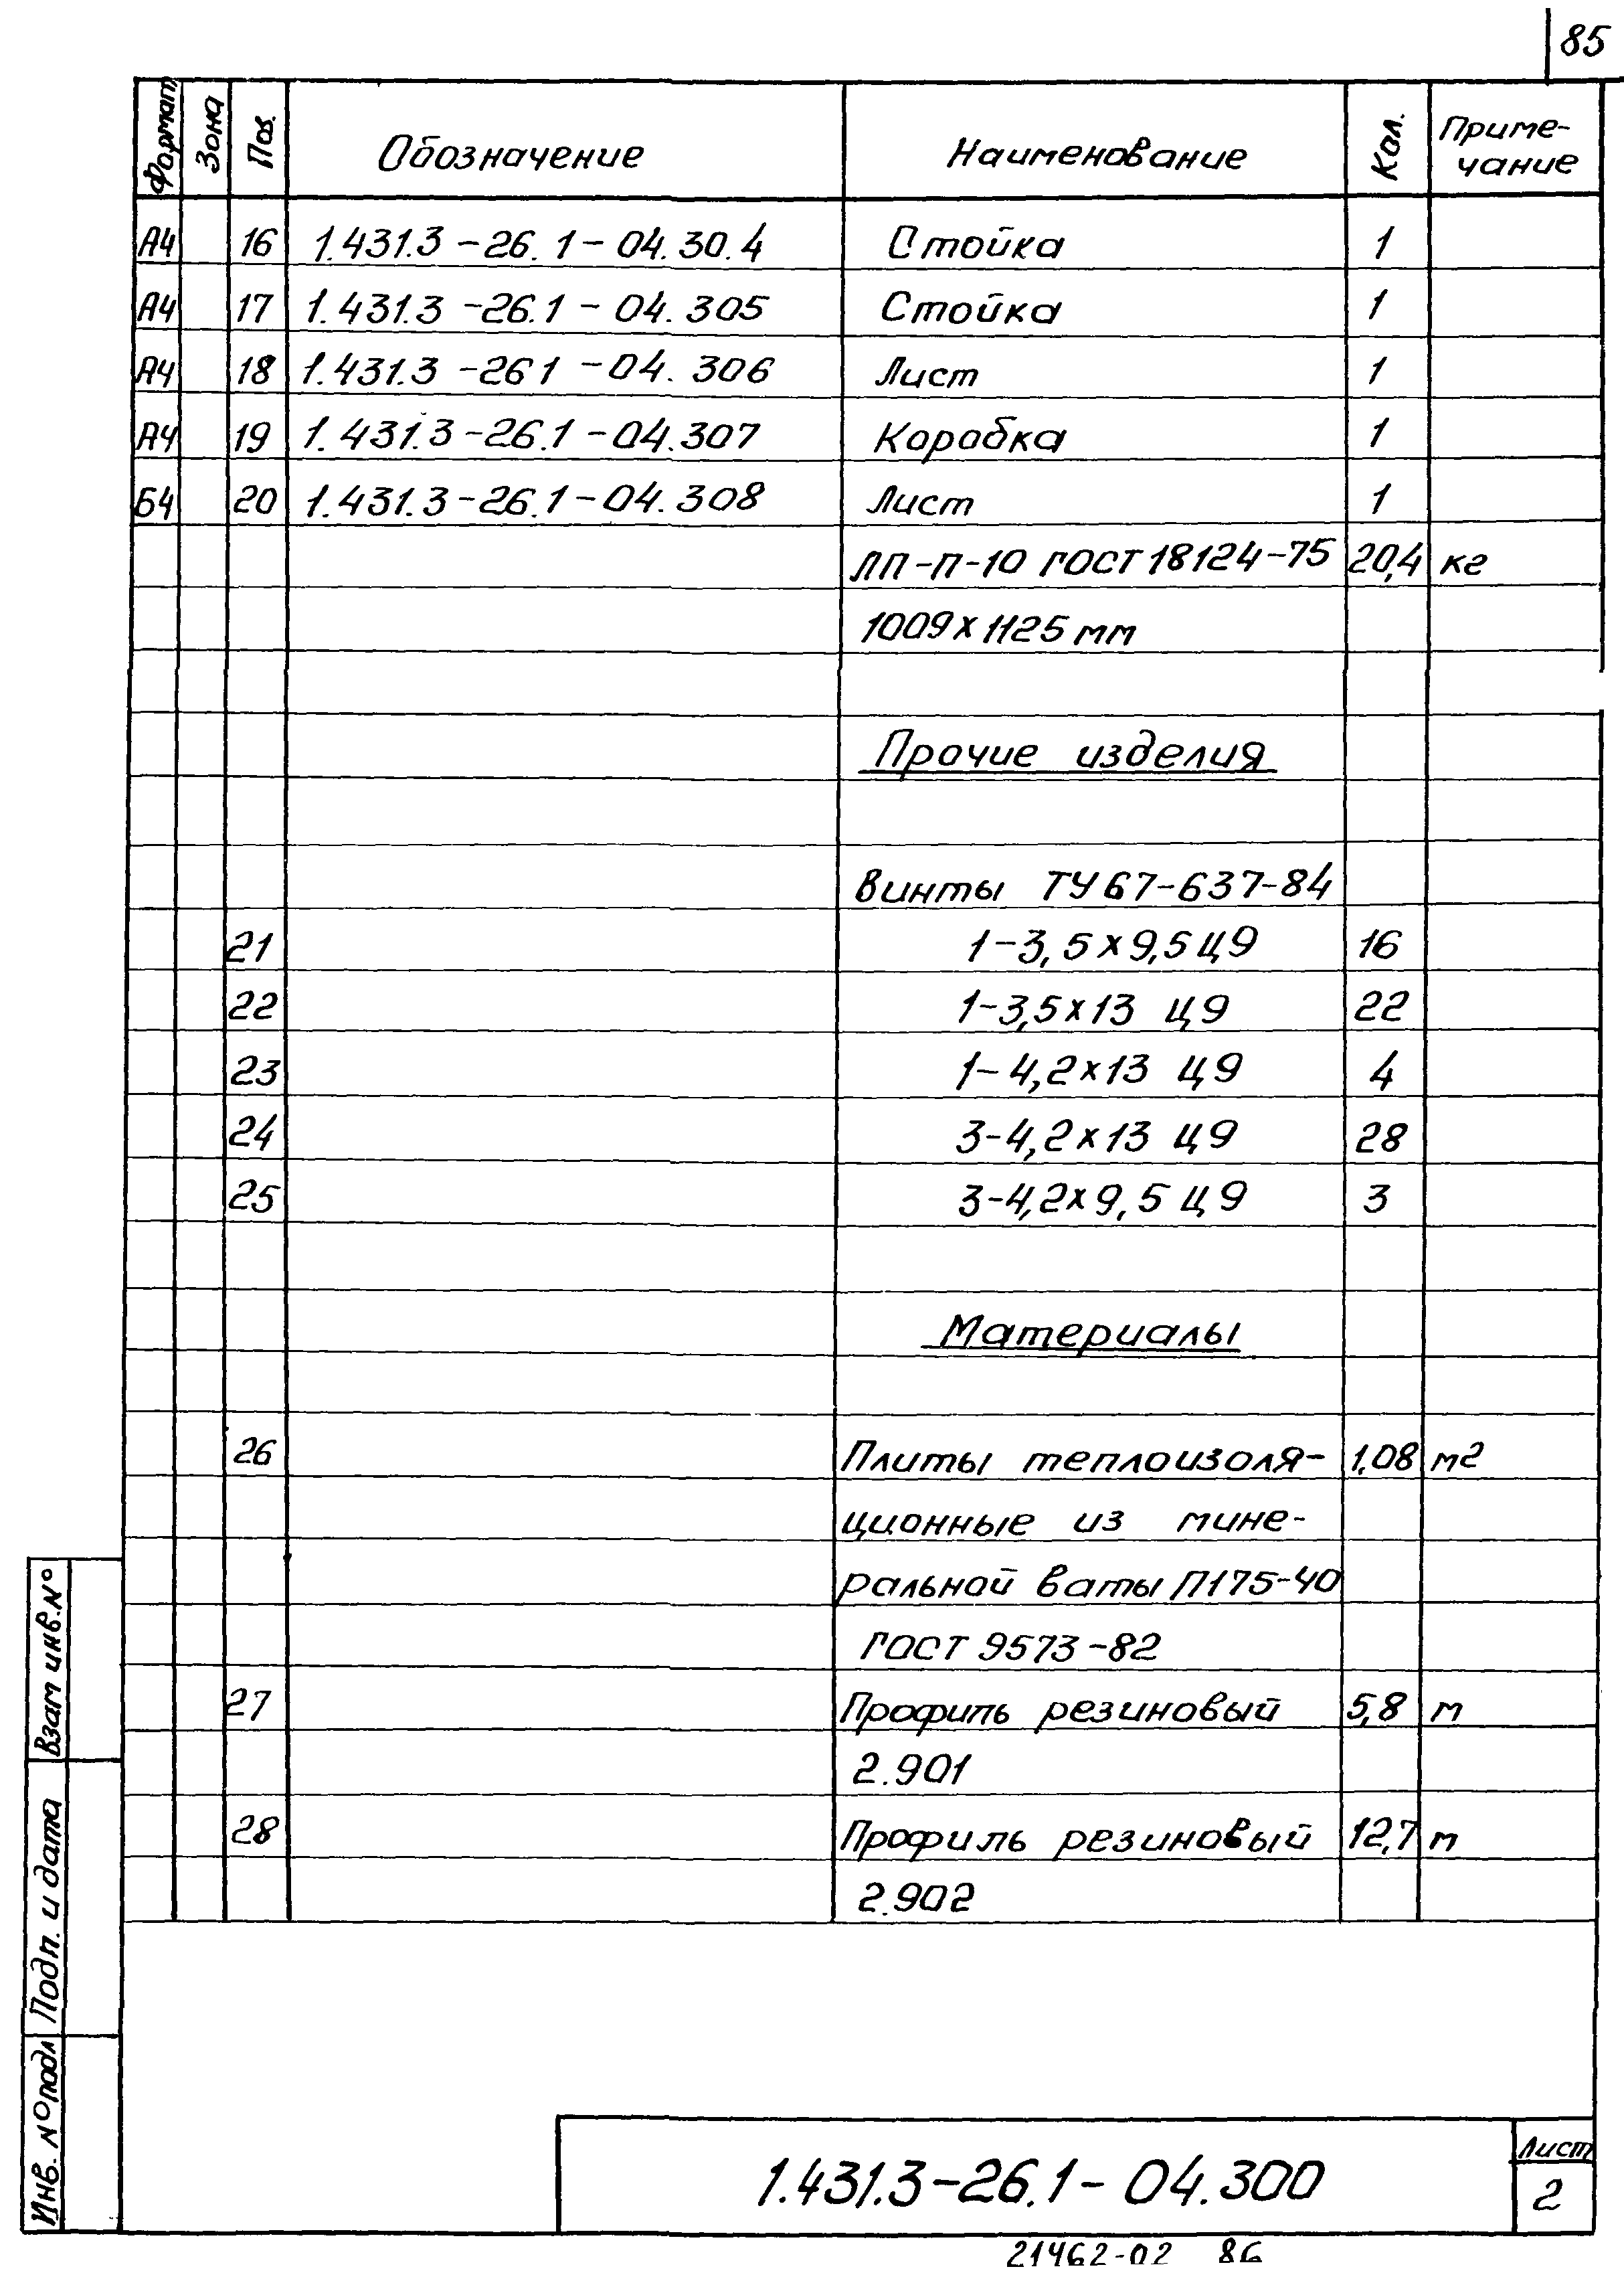 85
Формат Зона Поз. Обозначение Наименование Кол. Приме-
чание
А4 16 1.431.3-26.1-04.30.4 Стойка 1
А4 17 1.431.3-26.1-04.305 Стойка 1
А4 18 1.431.3-26 1-04.306 Лист 1
А4 19 1.431.3-26.1-04.307 Коробка 1
Б4 20 1.431.3-26.1-04.308 Лист 1
ЛП-П-10 ГОСТ 18124-75 20,4 кг
1009х1125 мм
Прочие изделия
Винты ТУ67-637-84
21 1-3,5х9,5 Ц9 16
22 1-3,5х13 Ц9 22
23 1-4,2х13 Ц9 4
24 3-4,2х13 Ц9 28
25 3-4,2х9,5 Ц9 3
Материалы
26 Плиты теплоизоля- 1,08 м2
ционные из мине-
ральной ваты П175-40
ГОСТ 9573-82
27 Профиль резиновый 5,8 м
2.901
28 Профиль резиновый 12,7 м
2.902
Взам инв.№
Подп. и дата
Инв. №подл
1.431.3-26.1-04.300
Лист
2
21462-02 86